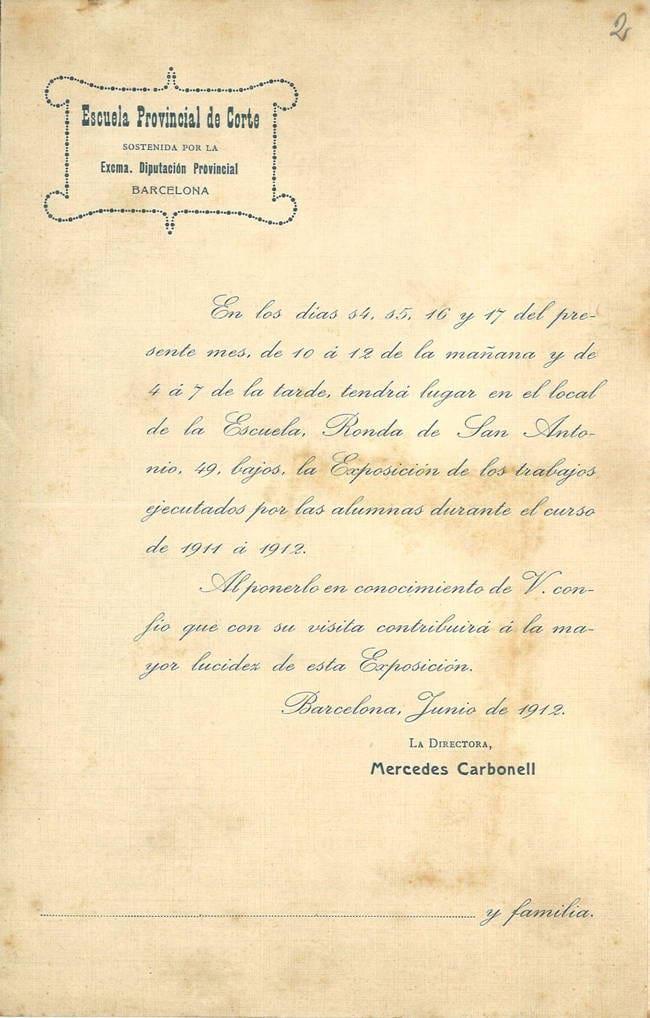 2
Escuela Provincial de Corte
SOSTENIDA POR LA
Excma. Diputación Provincial
BARCELONA
En los días s4, s5, 16 y 17 del pre-
sente mes, de 10 á 12 de la mañana y de
4 á 7 de la tarde, tendrá lugar en el local
de la Escuela, Ronda de San Anto-
nio, 49, bajos, la Exposición de los trabajos
ejecutados por las alumnas durante el curso
de 1911 á 1912.
Al ponerlo en conocimiento de V. con-
fío que con su visita contribuirá á la ma-
yor lucidez de esta Exposición.
Barcelona, Junio de 1912.
LA DIRECTORA,
Mercedes Carbonell
y familia.